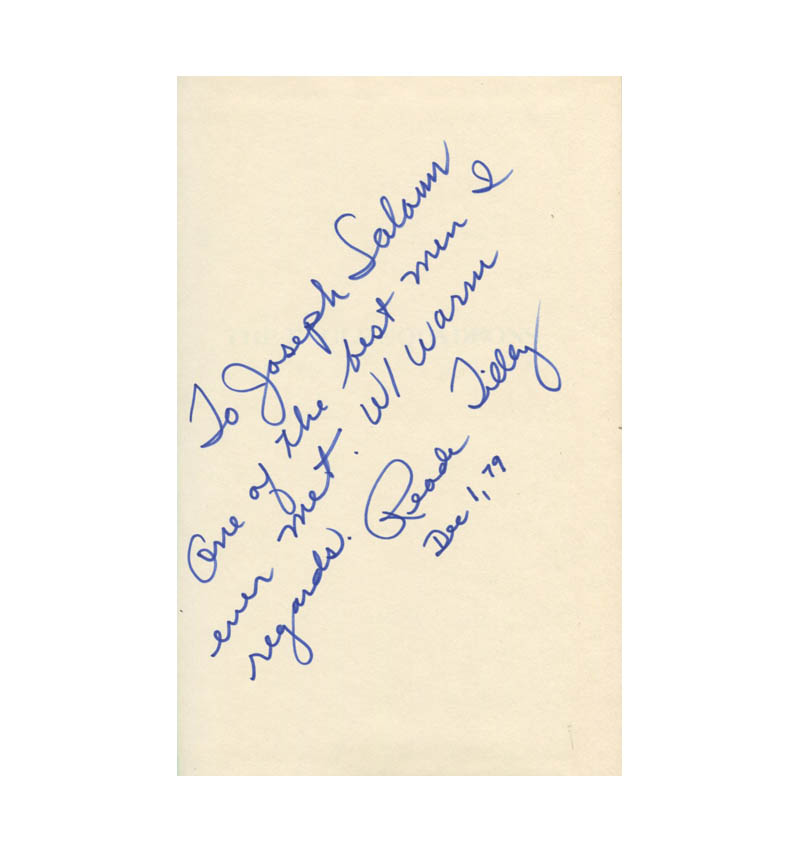 To Joseph Salaun
One of the best men I
ever met. W/ Warm
regards. Reade Tilley
Dec 1, 79